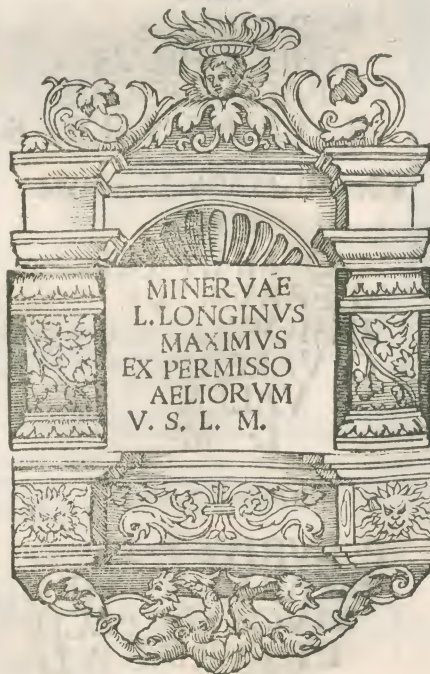 MINERVAE
L. LONGINVS
MAXIMVS
EX PERMISSO
AELIORVM
V. S. L. M.